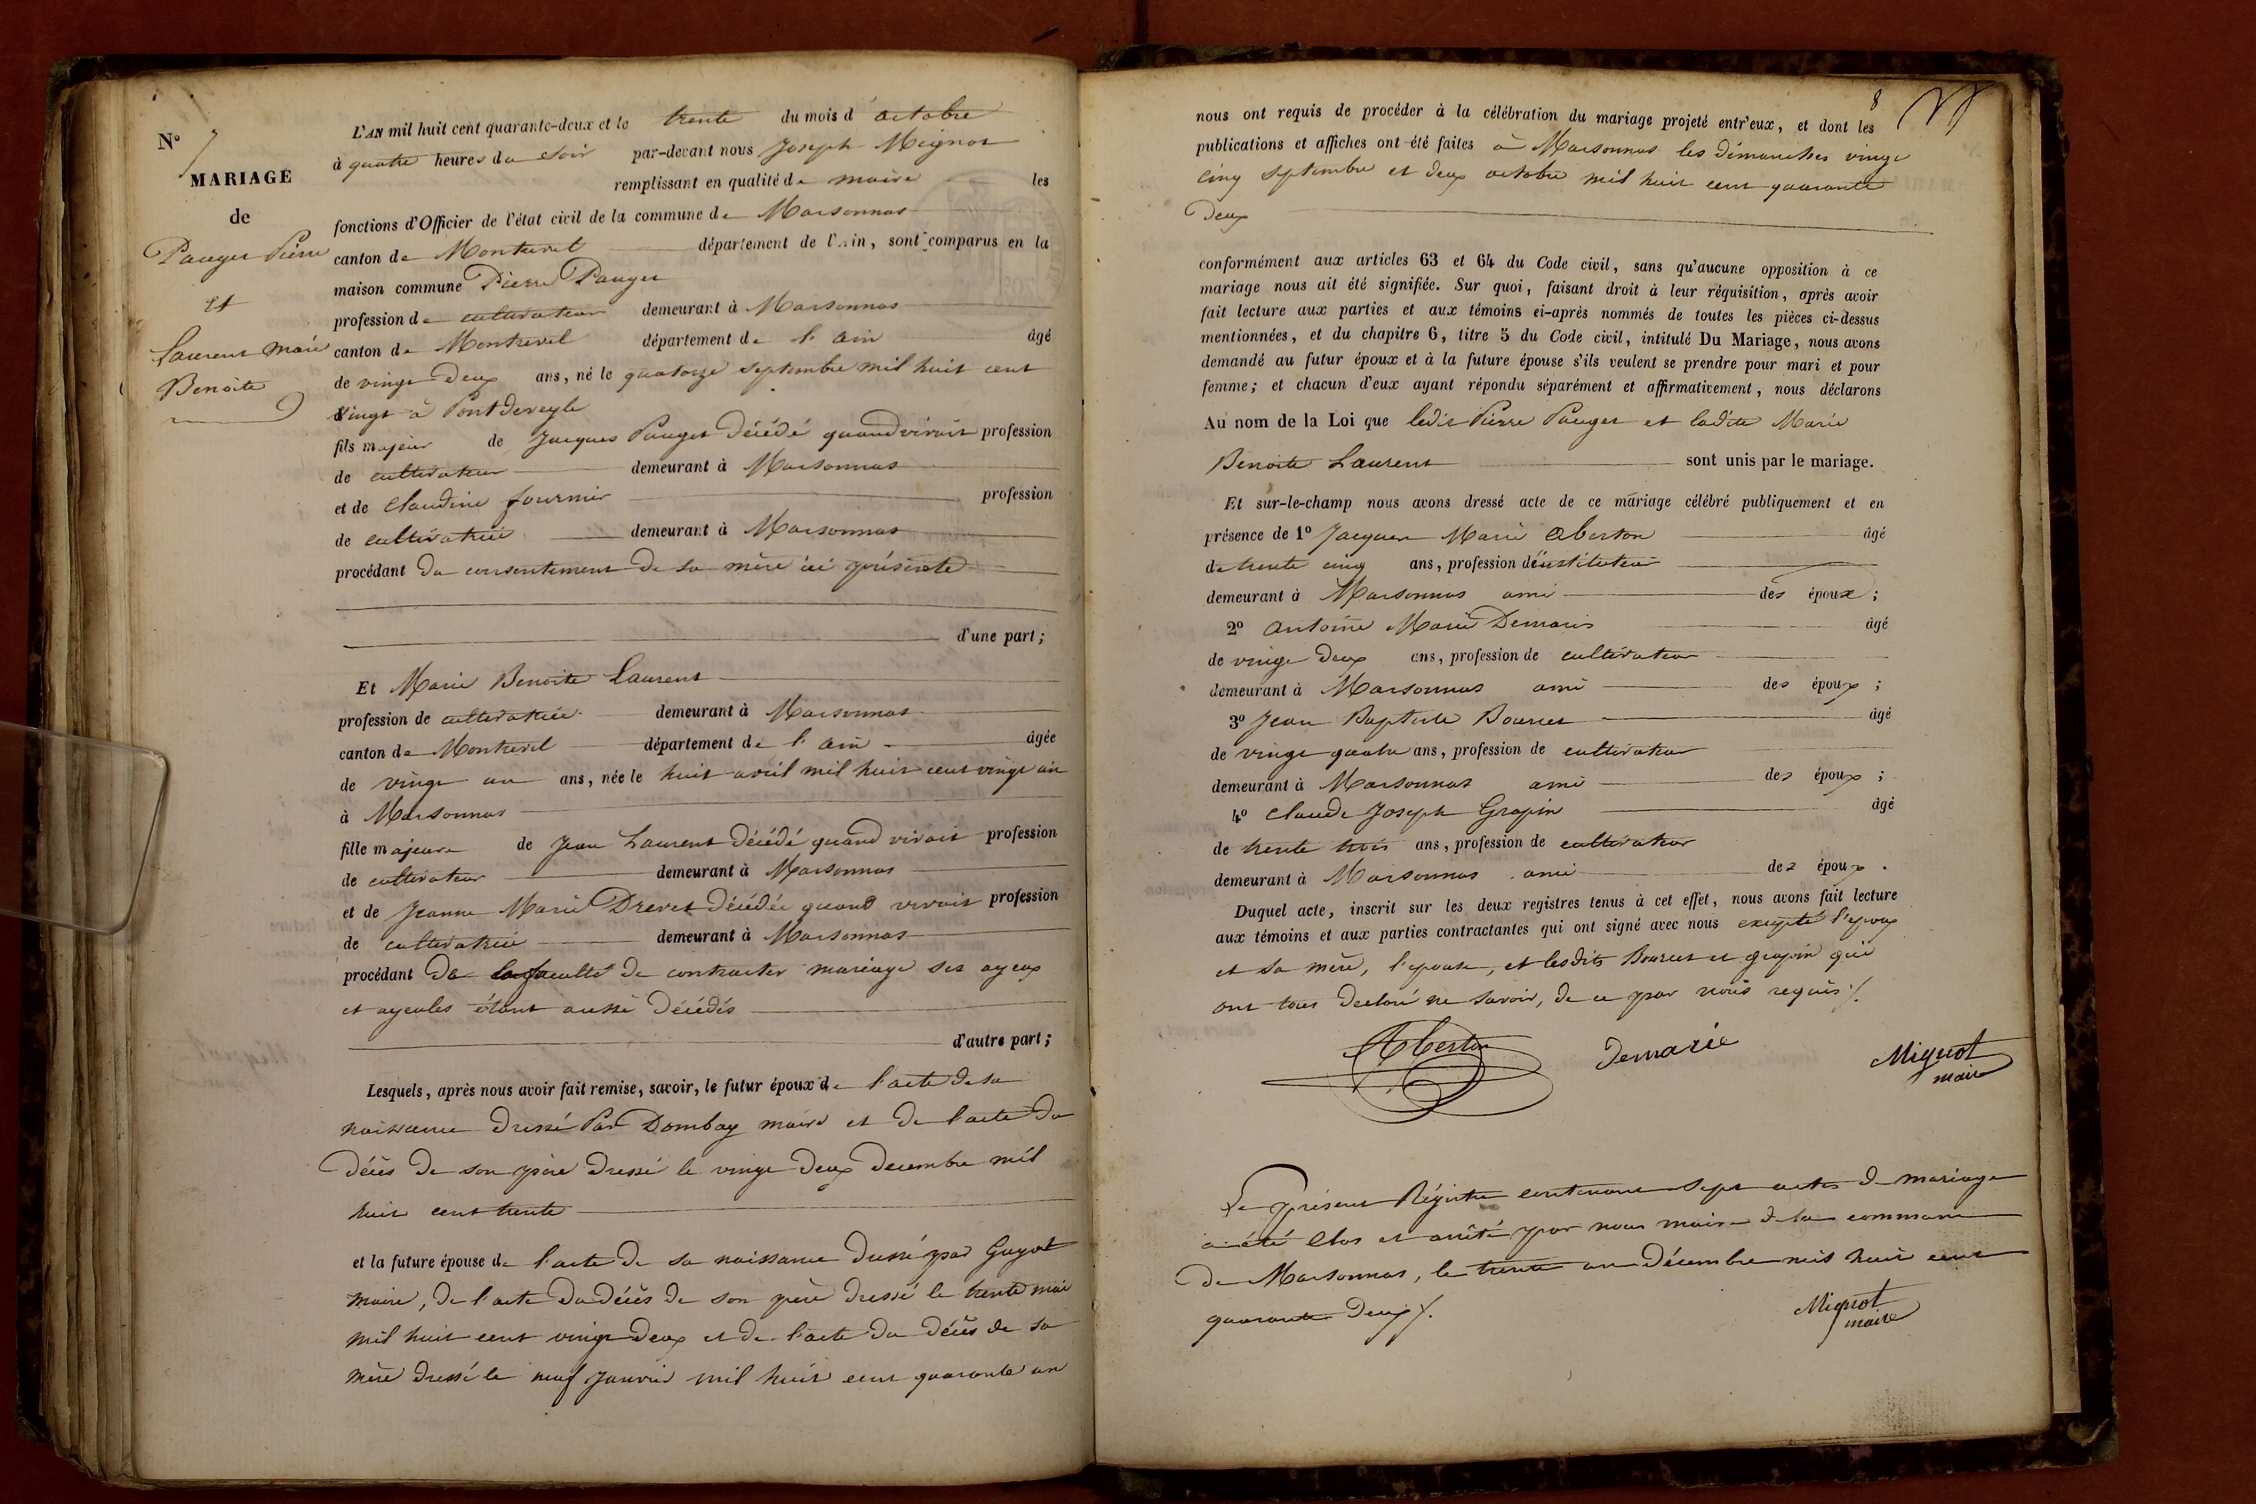 N° 7
MARIAGE
de
Pauget Pierre
et
Laurent Marie
Benoite
L'AN mil huit cent quarante-deux et le trente du mois d'octobre
à quatre heures du soir par-devant nous Joseph Mignot
remplissant en qualité de maire les
fonctions d'Officier de l'état civil de la commune de Marsonnas
canton de Montrevel département de l'Ain, sont comparus en la
maison commune Pierre Pauget
profession de cultivateur demeurant à Marsonnas
canton de Montrevel département de l'ain âgé
de vingt deux ans, né le quatorze septembre mil huit cent
vingt à Pontdeveyle
fils majeur de Jacques Pauget décédé quand vivait profession
de cultivateur demeurant à Marsonnas
et de Claudine fournier profession
de cultivatrice demeurant à Marsonnas
procédant du consentement de sa mère ici présente
d'une part;
Et Marie Benoite Laurent
profession de cultivatrice demeurant à Marsonnas
canton de Montrevel département de l'ain âgée
de vingt un ans, née le huit avril mil huit cent vingt un
à Marsonnas
fille majeure de Jean Laurent décédé quand vivait profession
de cultivateur demeurant à Marsonnas
et de Jeanne Marie Drevet décédée quand vivait profession
de cultivatrice demeurant à Marsonnas
procédant de la faculté de contracter mariage ses ayeux
et ayeules étant aussi décédés
d'autre part;
Lesquels, après nous avoir fait remise, savoir, le futur époux de l'acte de sa
naissance dressé Par Dombay maire et de l'acte du
décès de son père dressé le vingt deux decembre mil
huit cent trente
et la future épouse de l'acte de sa naissance dressé par Guyot
maire, de l'acte du décès de son père dressé le trente mai
mil huit cent vingt deux et de l'acte du décès de sa
mère dressé le neuf Janvier mil huit cent quarante un
8
nous ont requis de procéder à la célébration du mariage projeté entr'eux, et dont les
publications et affiches ont été faites à Marsonnas les dimanches vingt
cinq septembre et deux octobre mil huit cent quarante
deux
conformément aux articles 63 et 64 du Code civil, sans qu'aucune opposition à ce
mariage nous ait été signifiée. Sur quoi, faisant droit à leur réquisition, après avoir
fait lecture aux parties et aux témoins ci-après nommés de toutes les pièces ci-dessus
mentionnées, et du chapitre 6, titre 5 du Code civil, intitulé Du Mariage, nous avons
demandé au futur époux et à la future épouse s'ils veulent se prendre pour mari et pour
femme; et chacun d'eux ayant répondu séparément et affirmativement, nous déclarons
Au nom de la Loi que ledit Pierre Pauget et ladite Marie
Benoite Laurent sont unis par le mariage.
Et sur-le-champ nous avons dressé acte de ce mariage célébré publiquement et en
présence de 1° Jacques Marie Aberton âgé
de trente cinq ans, profession d'instituteur
demeurant à Marsonnas ami des époux;
2° Antoine Marie Demarie âgé
de vingt deux ans, profession de cultivateur
demeurant à Marsonnas ami des époux;
3° Jean Baptiste Bourcet âgé
de vingt quatre ans, profession de cultivateur
demeurant à Marsonnas ami des époux;
4° Claude Joseph Grapin âgé
de trente trois ans, profession de cultivateur
demeurant à Marsonnas ami des époux.
Duquel acte, inscrit sur les deux registres tenus à cet effet, nous avons fait lecture
aux témoins et aux parties contractantes qui ont signé avec nous excepté l'epoux
et sa mère, l'epouse, et lesdits Bourcet et grapin qui
ont tous declaré ne savoir, de ce par nous requis ./.
Aberton Demarie Mignot
maire
Le présent Régistre contenant sept actes de mariage
a été Clos et arrêté par nous maire de la commune
de Marsonnas, le trente un décembre mil huit cent
quarante deux ./.
Mignot
maire